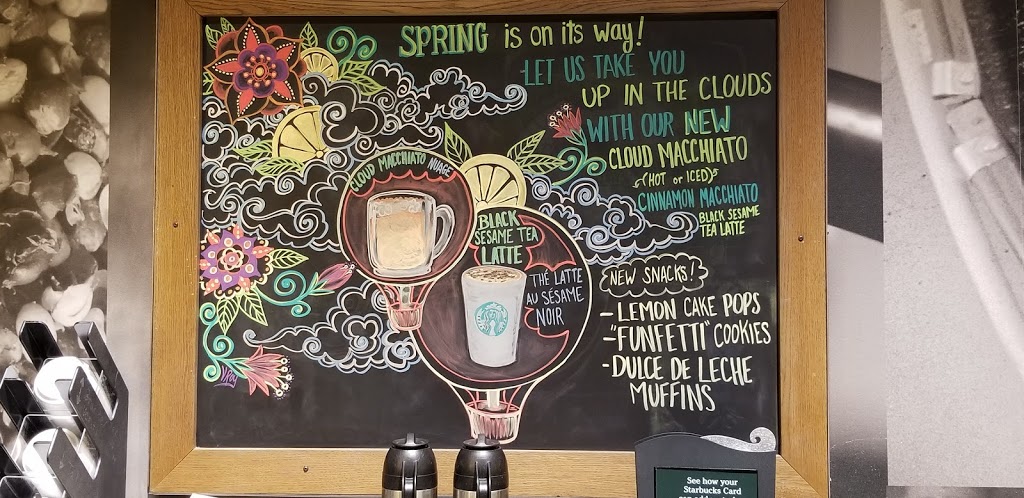 SPRING is on its way!
LET US TAKE YOU
UP IN THE CLOUDS
WITH OUR NEW
CLOUD MACCHIATO
(HOT or ICED)
CINNAMON MACCHIATO
BLACK SESAME
TEA LATTE
CLOUD MACCHIATO NUAGE
BLACK
SESAME TEA
LATTE
THÉ LATTE
AU SÉSAME
NOIR
NEW SNACKS!
- LEMON CAKE POPS
- "FUNFETTI" COOKIES
- DULCE DE LECHE
MUFFINS
See how your
Starbucks Card